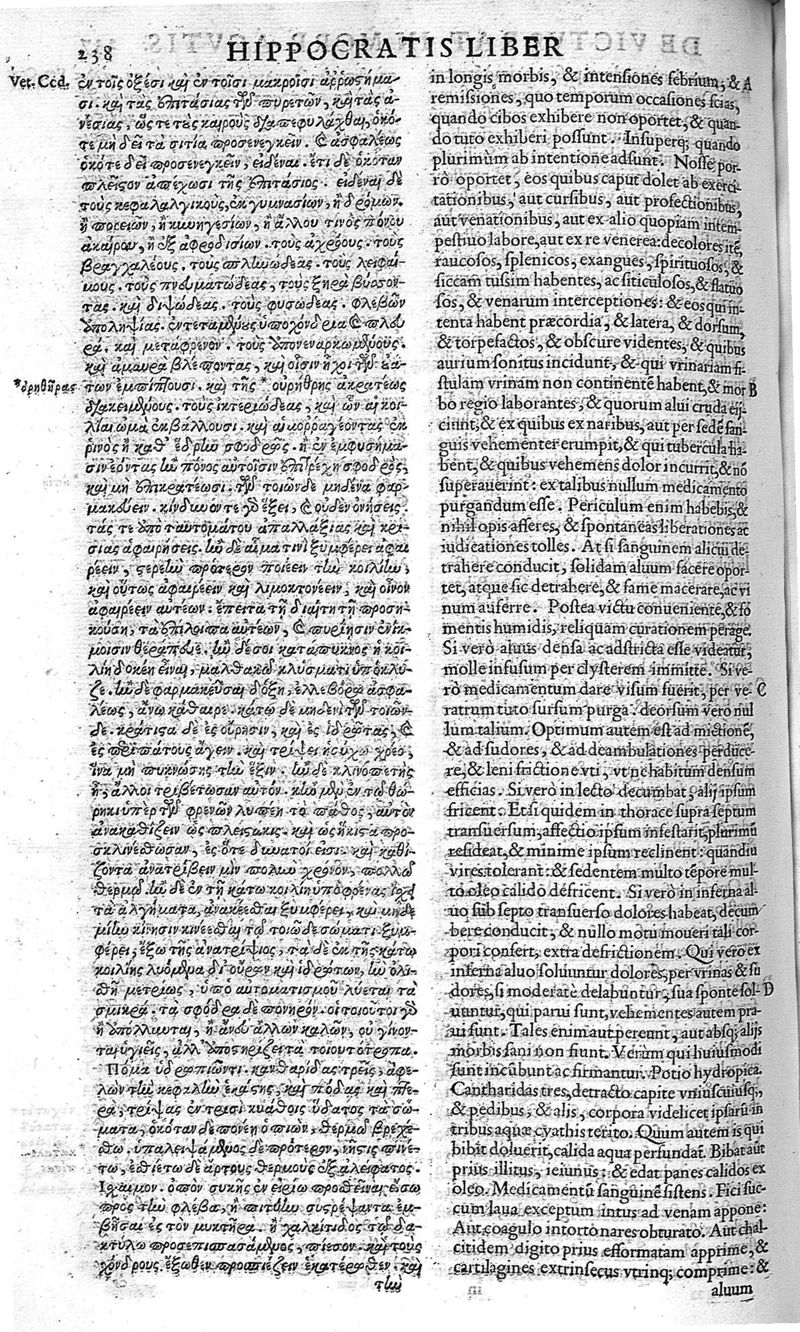 238 HIPPOCRATIS LIBER
Vet. Cod.
ἐν τοῖς ὀξέσι καὶ ἐν τοῖσι μακροῖσι ἀῤῥωστήμα-
σι. καὶ τὰς ἐπιτάσιας τῶν πυρετῶν, καὶ τὰς ἀ-
νέσιας, ὥς τε τὰς καιροὺς διαπεφυλάχθαι, ὁκό-
τε μὴ δεῖ τὰ σιτία προσενεγκεῖν. καὶ ἀσφαλέως
ὁκότε δεῖ προσενεγκεῖν, εἰδέναι. ἔτι δὲ ὁκόταν
πλεῖστον ἀπέχωσι τῆς ἐπιτάσιος. εἰδέναι δὲ
τοὺς κεφαλαλγικοὺς, ἐκ γυμνασίων, ἢ δρόμων,
ἢ πορειῶν, ἢ κυνηγεσίων, ἢ ἄλλου τινὸς πόνου
ἀκαίρου, ἢ ἐξ ἀφροδισίων. τοὺς ἀχρόους. τοὺς
βραγχαλέους. τοὺς σπληνώδεας. τοὺς λειφαί-
μους. τοὺς πνευματώδεας, τοὺς ξηρὰ βήσσον-
τας. καὶ διψώδεας. τοὺς φυσώδεας. φλεβῶν
ἀπολήψιας. ἐντεταμένους ὑποχόνδρια καὶ πλευ-
ρά. καὶ μετάφρενον. τοὺς ἀπονεναρκωμένους.
καὶ ἀμαυρὰ βλέποντας, καὶ οἷσιν ἦχοι τῶν ὠ-
*οὐρητῆρας
των ἐμπίπτουσι. καὶ τῆς * οὐρήθρης ἀκρατέως
διακειμένους. τοὺς ἰκτερώδεας, καὶ ὧν αἱ κοι-
λίαι ὠμὰ ἐκβάλλουσι. καὶ αἱμορραγέοντας ἐκ
ῥινὸς ἢ καθ' ἕδρην σφοδρῶς. ἢ ἐν ἐμφυσήμα-
σιν ἐόντας ἢν πόνος αὐτοῖσιν ἐπιτρέχῃ σφοδρὸς,
καὶ μὴ ἐπικρατέωσι. τῶν τοιῶνδε μηδένα φαρ-
μακεύειν. κίνδυνόν τε γὰρ ἕξει. καὶ οὐδὲν ὀνήσεις.
τάς τε ἀπὸ ταυτομάτου ἀπαλλάξιας καὶ κρί-
σιας ἀφαιρήσεις. ἢν δὲ αἷμα τινὶ ξυμφέρει ἀφαι
ρέειν, στερεὴν πρότερον ποιέειν τὴν κοιλίην,
καὶ οὕτως ἀφαιρέειν καὶ λιμοκτονέειν, καὶ οἶνον
ἀφαιρέειν αὐτέων: ἔπειτα τῇ διαίτῃ τῇ προση-
κούσῃ, τὰ ἐπίλοιπα αὐτέων, καὶ πυρίησιν ἐνίκ-
μοισιν θεράπευε. ἢν δέ σοι κατάπυκνος ἡ κοι-
λίη δοκέῃ εἶναι, μαλθακῷ κλύσματι ὑπόκλυ-
ζε. ἢν δὲ φαρμακεῦσαι δόξῃ, ἐλλεβόρῳ ἀσφα-
λέως, ἄνω κάθαιρε. κάτω δὲ μηδενὶ τῶν τοιῶν-
δε. κράτιστα δὲ ἐς οὔρησιν, καὶ ἐς ἱδρῶτας, καὶ
ἐς περιπάτους ἄγειν. καὶ τρίψει ἡσύχῳ χρέο,
ἵνα μὴ πυκνώσῃς τὴν ἕξιν. ἢν δὲ κλινοπετὴς
ᾖ, ἄλλοι τριβέτωσαν αὐτόν. κἢν μὲν ἐν τῷ θώ-
ρηκι ὑπὲρ τῶν φρενῶν λυπέῃ τὸ πάθος, αὐτὸν
ἀνακαθίζειν ὡς πλειστάκις. καὶ ὡς ἥκιστα προ-
σκλινέσθωσαν, ἐς ὅτε δυνατοί εἰσι. καὶ καθί-
ζοντα ἀνατρίβειν μὶν πολὺν χρόνον, πολλῷ
θερμῷ. ἢν δὲ ἐν τῇ κάτω κοιλίῃ ὑπὸ φρένας ἴσχῃ
τὰ ἀλγήματα, ἀνακεῖσθαι ξυμφέρει, καὶ μηδε-
μίην κίνησιν κινέεσθαι τῷ τοιῷδε σώματι ξυμ-
φέρει, ἔξω τῆς ἀνατρίψιος, τὰ δὲ ἐκ τῆς κάτω
κοιλίης λυόμενα δι' οὔρων καὶ ἱδρώτων, ἢν ὀλι-
σθῇ μετρίως, ὑπὸ αὐτοματισμοῦ λύεται τὰ
σμικρά. τὰ σφόδρα δὲ πονηρόν. οἱ τοιοῦτοι γὰρ
ἢ ἀπόλλυνται, ἢ ἄνευ ἄλλων κακῶν, οὐ γίνον-
ται ὑγιεῖς, ἀλλ' ἀποστηρίζεται τοιουτότροπα.
Πόμα ὑδρωπιῶντι. κανθαρίδας τρεῖς, ἀφε-
λὼν τὴν κεφαλὴν ἑκάστης, καὶ πόδας καὶ πτε-
ρὰ, τρίψας ἐν τρισὶ κυάθοις ὕδατος τὰ σώ-
ματα, ὁκόταν δὲ πονέῃ ὁ πιὼν, θερμῷ βρεχέ-
σθω. ὑπαλειψάμενος δὲ πρότερον, νῆστις πινέ-
τω, ἐσθιέτω δὲ ἄρτους θερμοὺς ἐξ ἀλείφατος.
Ἴσχαιμον. ὀπὸν συκῆς ἐν εἰρίῳ προσθεῖναι ἔσω
πρὸς τὴν φλέβα, ἢ πιτύην συστρέψαντα ἐμ-
βῆσαι ἐς τὸν μυκτῆρα. ἢ χαλκίτιδος τῷ δα-
κτύλῳ προσεπιπασάμενος, πίεσον. καὶ τοὺς
χόνδρους ἔξωθεν προσπιέζειν ἑκατέρωθεν. καὶ
τὴν
in longis morbis, & intensiones febrium, & A
remissiones, quo temporum occasiones scias,
quando cibos exhibere non oportet, & quan-
do tuto exhiberi possunt. Insuperq; quando
plurimùm ab intentione adsunt. Nosse por-
rò oportet, eos quibus caput dolet ab exerci-
tationibus, aut cursibus, aut profectionibus,
aut venationibus, aut ex alio quopiam intem
pestiuo labore, aut ex re venerea: decolores itē,
raucosos, splenicos, exangues, spirituosos, &
siccam tussim habentes, ac siticulosos, & flatuo
sos, & venarum interceptiones: & eos qui in-
tenta habent præcordia, & latera, & dorsum,
& torpefactos, & obscure videntes, & quibus
aurium sonitus incidunt, & qui vrinariam fi-
stulam vrinam non continentē habent, & mor B
bo regio laborantes, & quorum alui cruda eij-
ciunt, & ex quibus ex naribus, aut per sedē san-
guis vehementer erumpit, & qui tubercula ha-
bent, & quibus vehemens dolor incurrit, & nō
superauerint: ex talibus nullum medicamento
purgandum esse. Periculum enim habebis, &
nihil opis afferes, & spontaneas liberationes ac
iudicationes tolles. At si sanguinem alicui de-
trahere conducit, solidam aluum facere opor-
tet, atque sic detrahere, & fame macerare, ac vi
num auferre. Postea victu conueniente, & fo
mentis humidis, reliquam curationem perage.
Si verò aluus densa ac adstricta esse videatur,
molle infusum per clysterem immitte. Si ve-
rò medicamentum dare visum fuerit, per ve- C
ratrum tuto sursum purga: deorsum vero nul
lum talium. Optimum autem est ad mictionē,
& ad sudores, & ad deambulationes perduce-
re, & leni frictione vti, vt ne habitum densum
efficias. Si verò in lecto decumbat, alij ipsum
fricent. Et si quidem in thorace supra septum
transuersum, affectio ipsum infestarit, plurimū
resideat, & minime ipsum reclinent: quandiu
vires tolerant: & sedentem multo tēpore mul-
to oleo calido defricent. Si verò in inferna al-
uo sub septo transuerso dolores habeat, decum
bere conducit, & nullo motu moueri tali cor-
pori confert, extra defrictionem. Qui vero ex
inferna aluo soluuntur dolores, per vrinas & su
dores, si moderatè delabuntur, sua sponte sol- D
uuntur, qui parui sunt, vehementes autem pra-
ui sunt. Tales enim aut pereunt, aut absq; alijs
morbis sani non fiunt. Verùm qui huiusmodi
sunt incūbunt ac firmantur. Potio hydropica.
Cantharidas tres, detracto capite vniuscuiusq;,
& pedibus, & alis, corpora videlicet ipsarū in
tribus aquæ cyathis terito. Quum autem is qui
bibit doluerit, calida aqua perfundat. Bibat aut
prius illitus, ieiunus: & edat panes calidos ex
oleo. Medicamentū sanguinē sistens. Fici suc-
cum lana exceptum intus ad venam appone:
Aut coagulo intorto nares obturato. Aut chal-
citidem digito prius efformatam apprime, &
cartilagines extrinsecus vtrinq; comprime: &
aluum